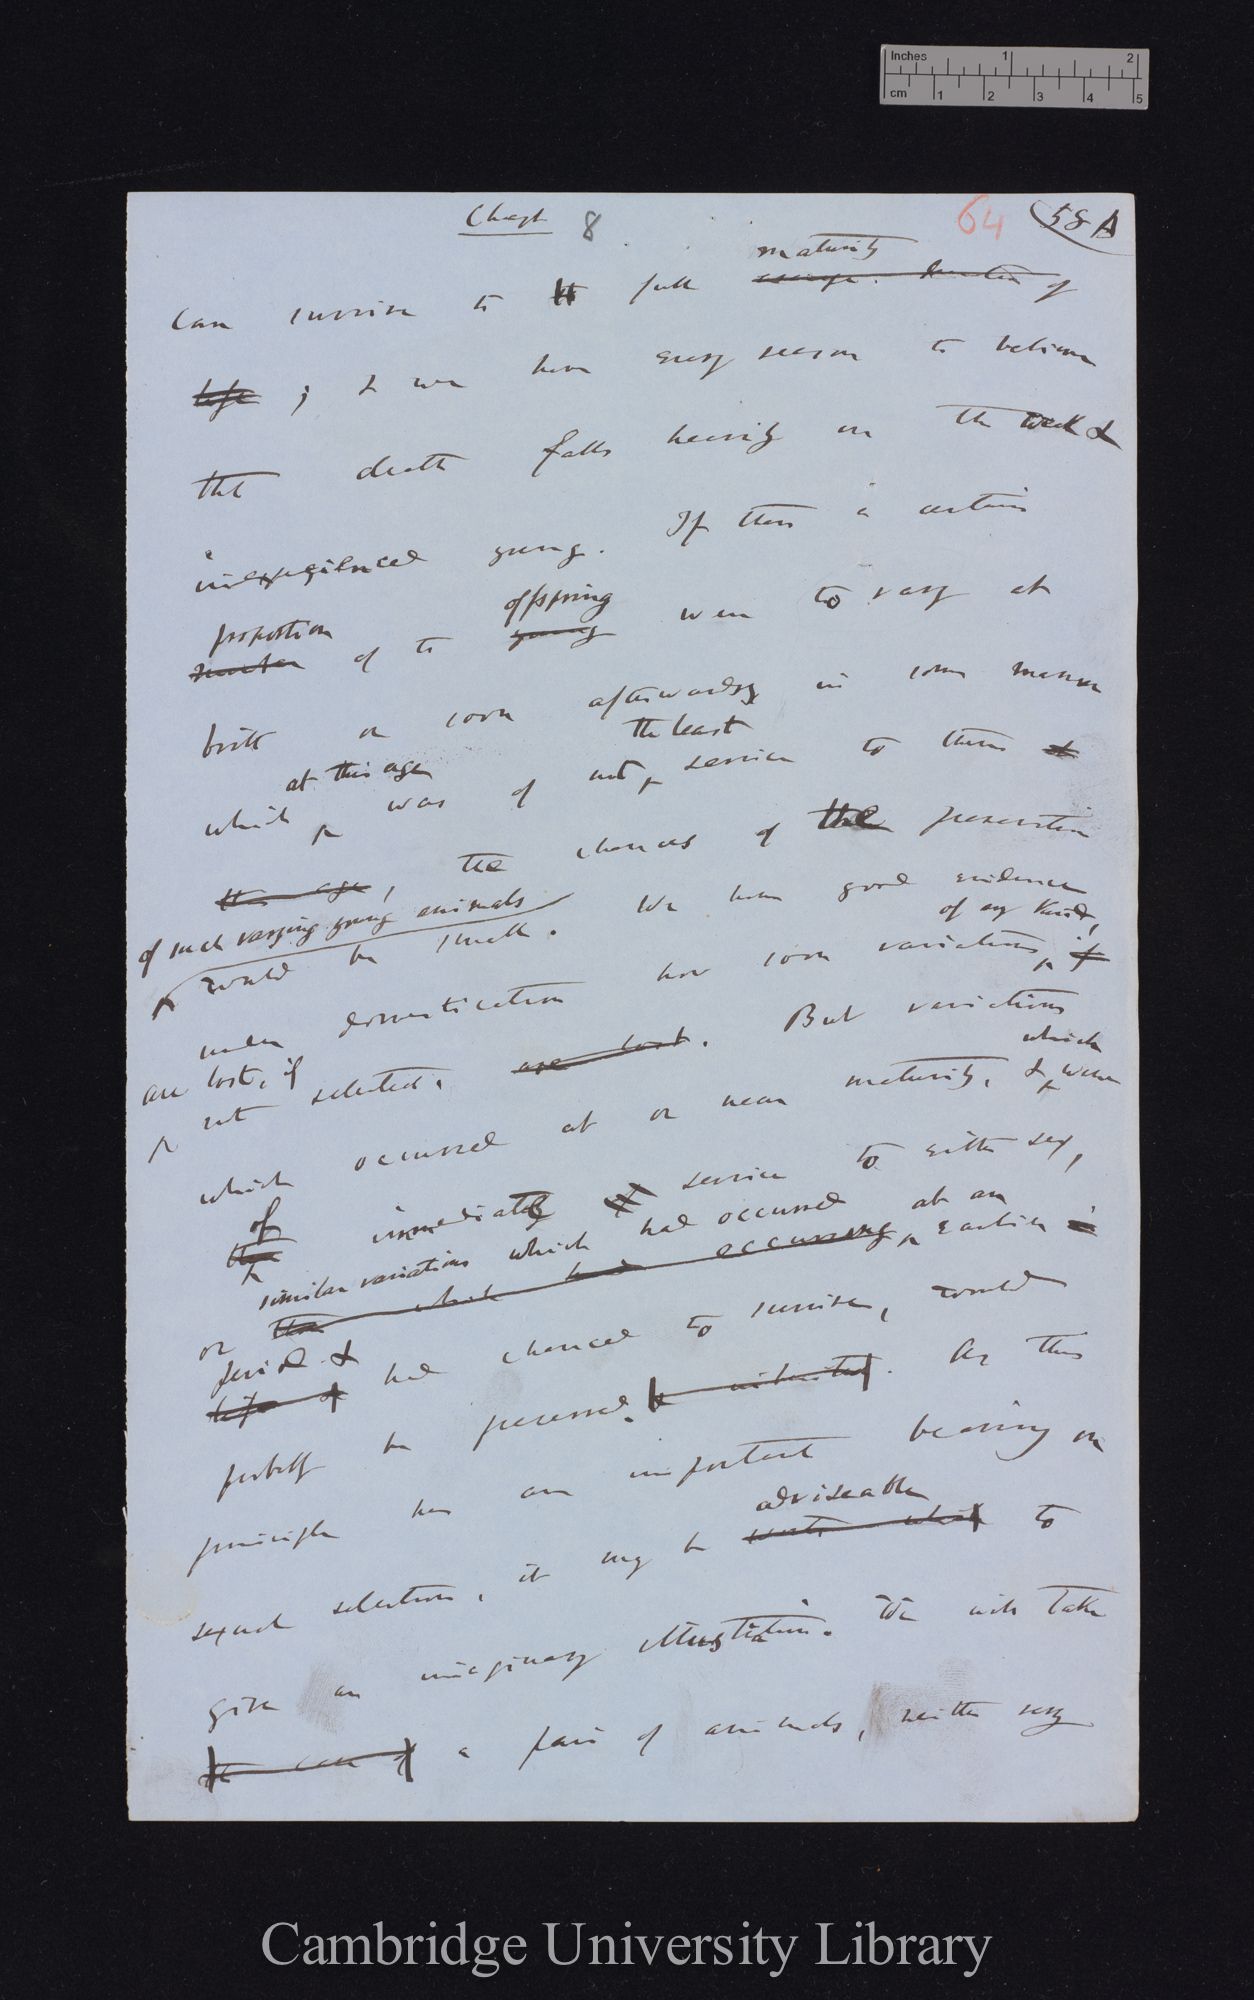 Inches 1 2
cm 1 2 3 4 5
Chapt 8 64 58 A
maturity
can survive to full average duration of
life ; & we have every reason to believe
that death falls heavily on the weak &
inexperienced young. If then a certain
proportion offspring
number of the young were to vary at
birth or soon afterwards, in some manner
at this age the least
which was of not service to them at
this age, the chances of the preservation
of such varying young animals
would be small. We have good evidence
of any kind,
under domestication how soon variations, if
are lost, if
not selected, are lost. But variations
which
which occurred at or near maturity, & were
of
the immediate service to either sex,
similar variations which had occurred at an
or the which had occurring earlier
period &
life & had chanced to survive, would
probably be preserved, & inherited. As this
principle has an important bearing on
adviseable
sexual selection, it may be worth while to
give an imaginary illustration. We will take
the case of a pair of animals, neither very
Cambridge University Library